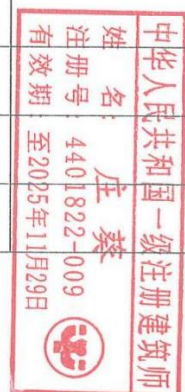 中华人民共和国一级注册建筑师
姓 名: 庄葵
注册号: 4401822-009
有效期: 至2025年11月29日